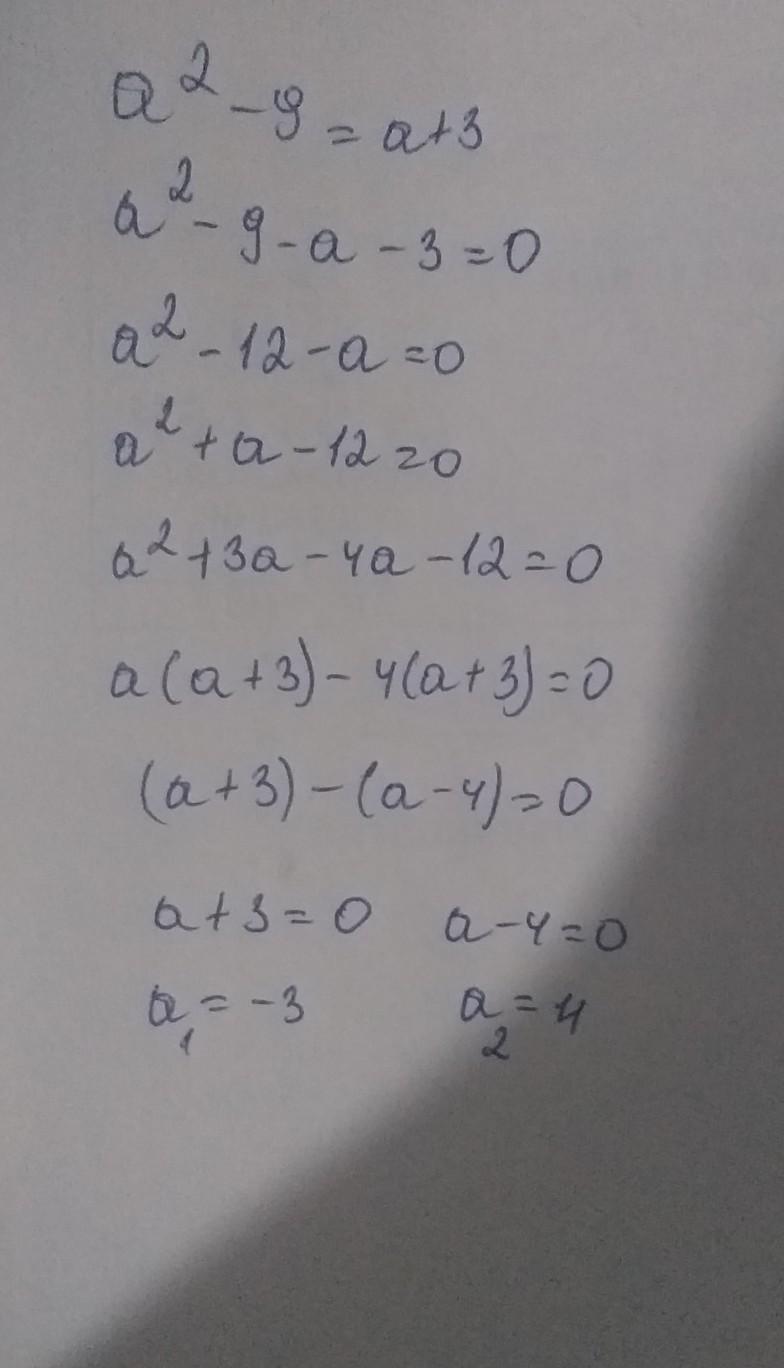 a² - 9 = a+3
a² - 9 - a - 3 = 0
a² - 12 - a = 0
a² + a - 12 = 0
a² + 3a - 4a - 12 = 0
a(a+3) - 4(a+3) = 0
(a+3) - (a-4) = 0
a+3 = 0 a-4 = 0
a₁ = -3 a₂ = 4